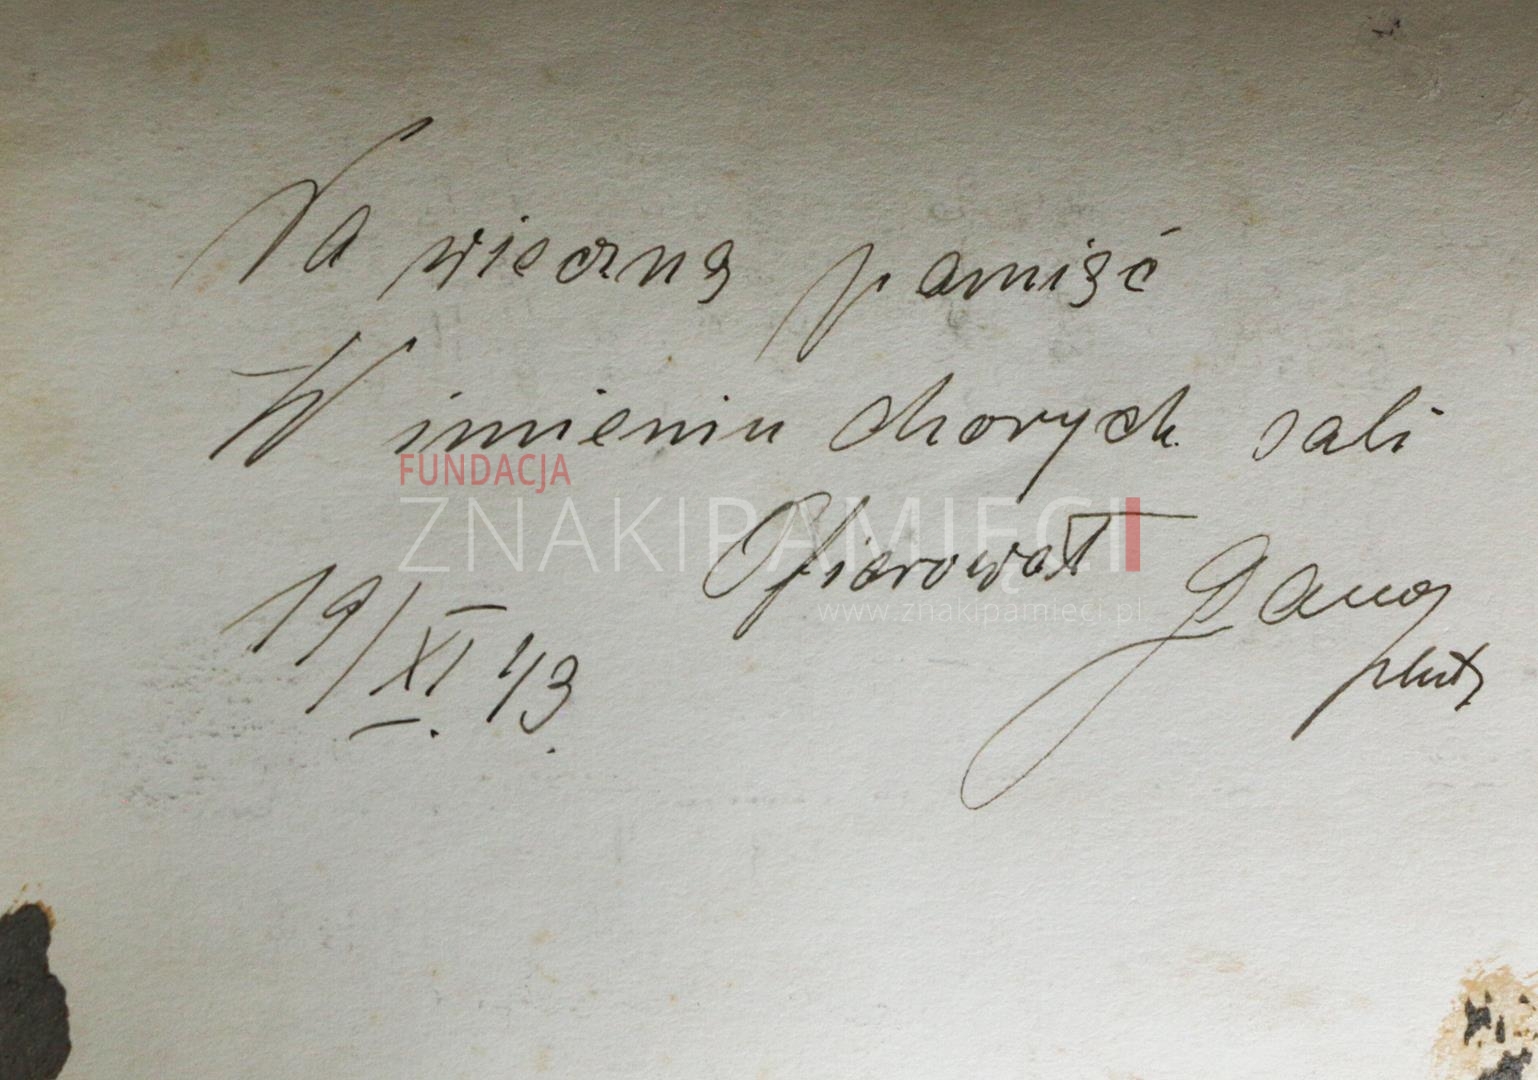 Na wieczną pamięć
W imieniu chorych sali
FUNDACJA
ZNAKIPAMIĘCI
Ofiarował
www.znakipamieci.pl
19/XI 43.